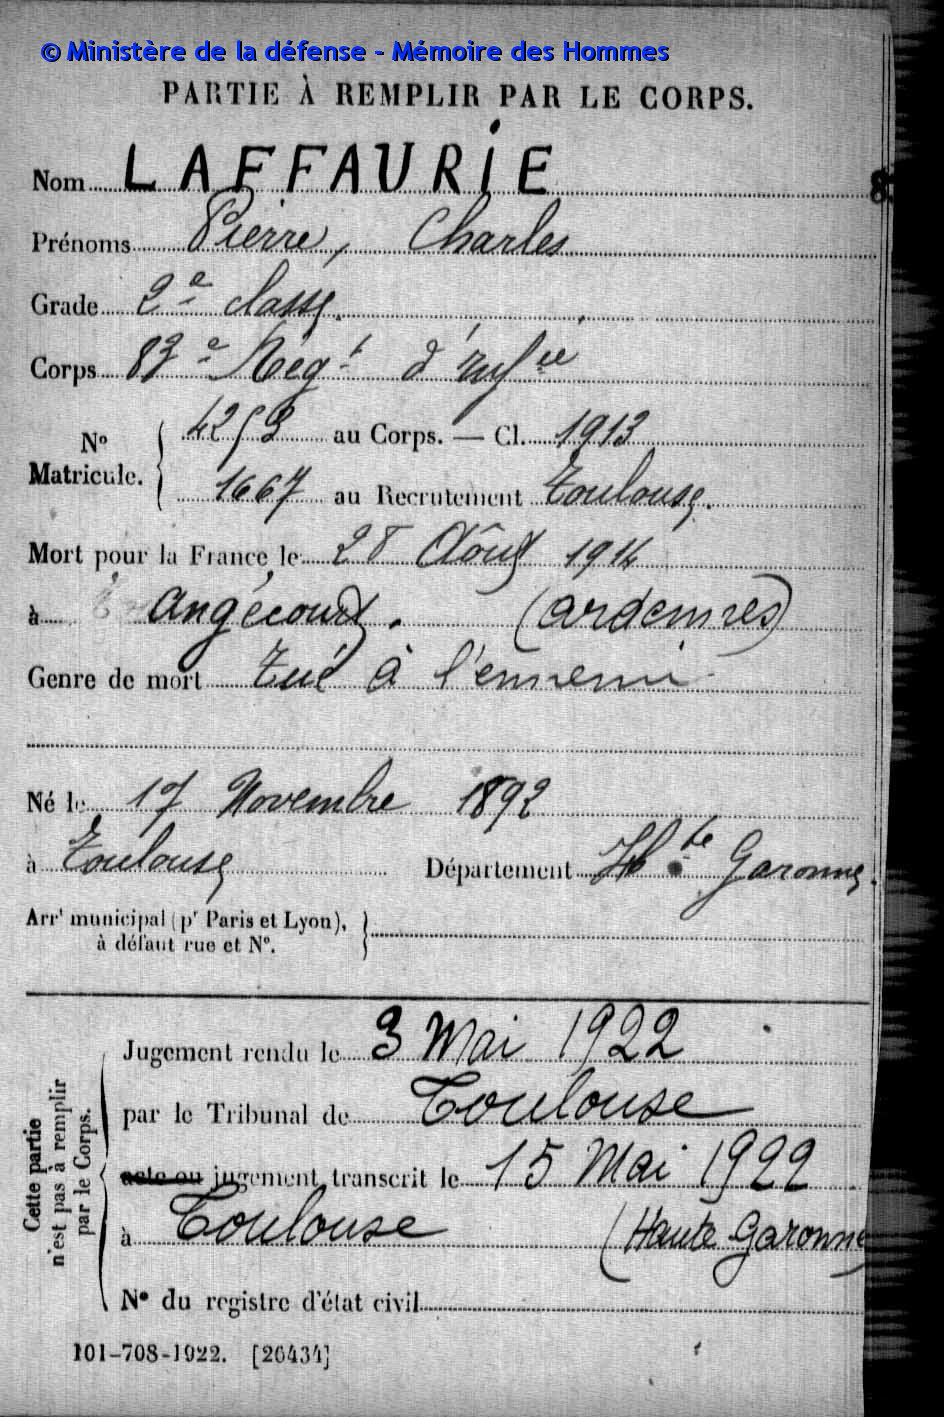 © Ministère de la défense - Mémoire des Hommes
PARTIE À REMPLIR PAR LE CORPS.
Nom LAFFAURIE
Prénoms Pierre, Charles
Grade 2e classe.
Corps 83e Régt d'Infie
No Matricule. 4253 au Corps. — Cl. 1913
1667 au Recrutement Toulouse.
Mort pour la France le 28 Août 1914
à Angécourt. (Ardennes)
Genre de mort Tué à l'ennemi
Né le 17 Novembre 1892
à Toulouse Département Hte Garonne.
Arrt municipal (pr Paris et Lyon),
à défaut rue et No.
Cette partie n'est pas à remplir par le Corps.
Jugement rendu le 3 Mai 1922
par le Tribunal de Toulouse
acte ou jugement transcrit le 15 Mai 1922
à Toulouse (Haute Garonne)
No du registre d'état civil
101-708-1922. [26434]